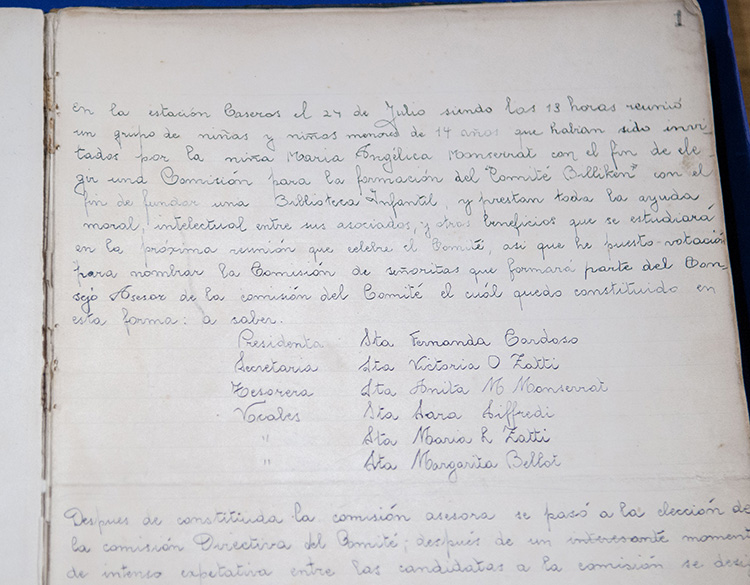 1
En la estación Caseros el 24 de Julio siendo las 13 horas reunió
un grupo de niñas y niños menores de 14 años que habian sido invi-
tados por la niña Maria Angélica Monserrat con el fin de ele-
gir una Comisión para la formación del "Comité Billiken" con el
fin de fundar una Biblioteca Infantil, y prestan toda la ayuda
moral, intelectual entre sus asociados, y otros beneficios que se estudiará
en la próxima reunión que celebre el Comité, asi que he puesto votación
para nombrar la Comisión de señoritas que formará parte del Con-
sejo Asesor de la comisión del Comité el cuál quedo constituido en
esta forma: a saber.
Presidenta Sta Fernanda Cardoso
Secretaria Sta Victoria O Zatti
Tesorera Sta Anita M Monserrat
Vocales Sta Sara Siffredi
" Sta Maria L Zatti
" Sta Margarita Bellot
Despues de constituida la comisión asesora se pasó a la elección de
la comisión Directiva del Comité; después de un interesante moment
de intenso expetativa entre las candidatas a la comisión se des